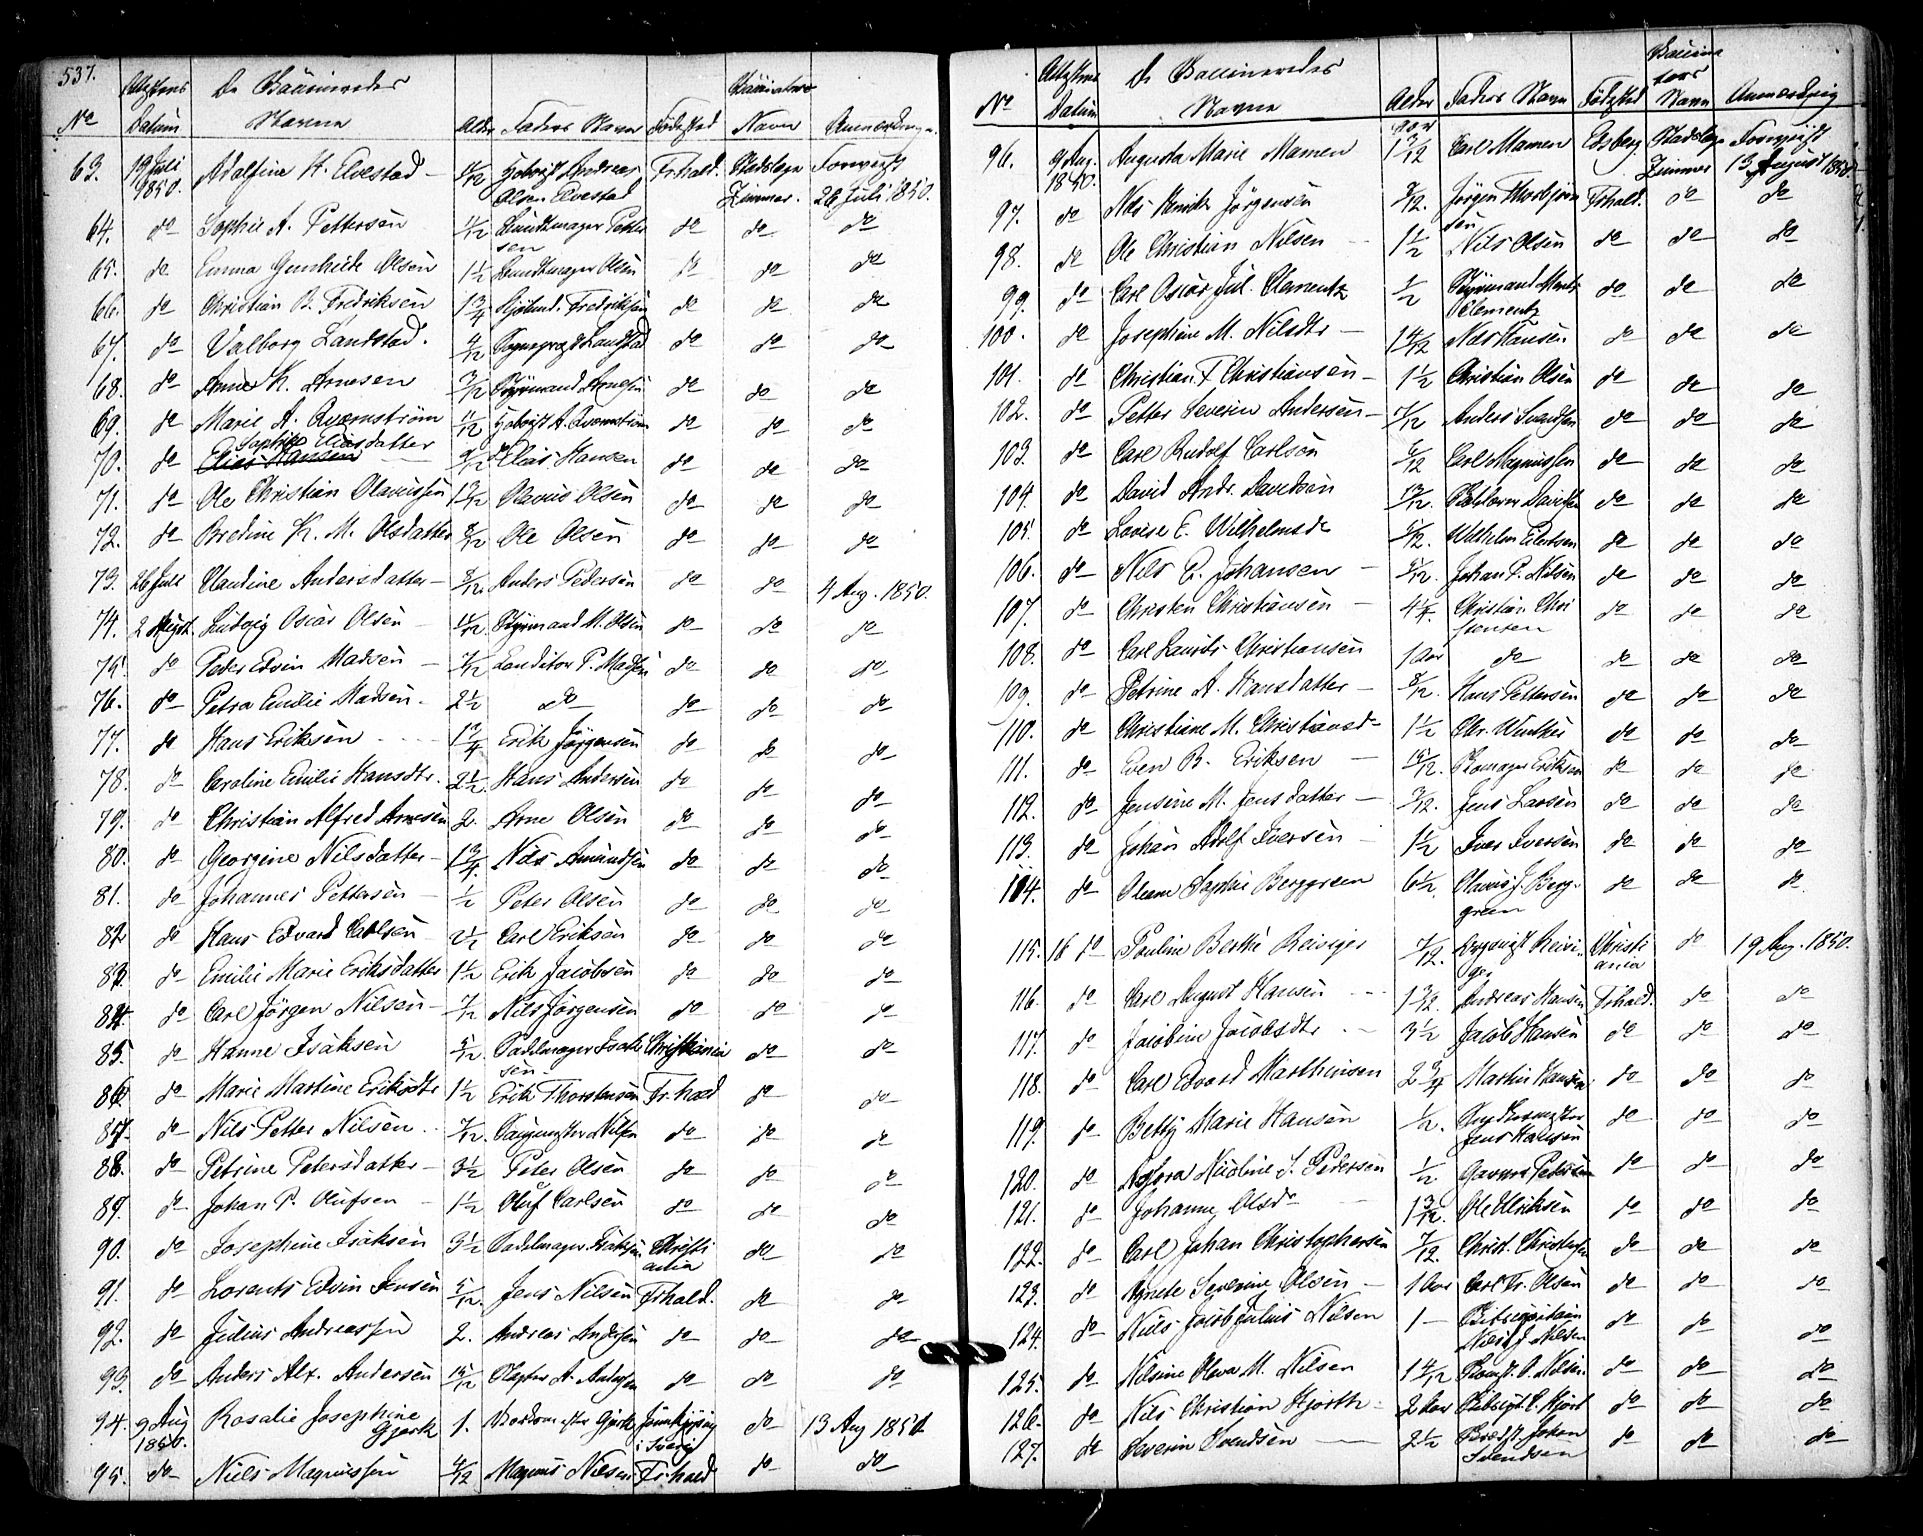 537.
Attestens De Vaccineredes Vaccinateurs
No Datum Navne Alder Faders Navn Fødested Navn Anmærkning
63. 19 Juli 1850. Adolfine H. Elvestad Andreas Olsen Elvestad Frhald. Zimmer. 26 Juli 1850.
64. do Sophie A. Pettersen 1/12 Petter sen do do do
65. do Emma Olsen 1 1/2 Olsen do do do
66. do Christian B. Fredriksen 1 3/4 Fredriksen do do do
67. do Valborg Landstad. 9/12 Landstad do do do
68. do K. Arnesen Styrmand Arnesen do do do
69. do Marie A. Qvernstrøm 11/12 A. Qvernstrøm do do do
70. do Sophie Eliasdatter Elias Hansen do do do
71. do Ole Christian Olaussen Olaus Olsen do do do
72. do Bredine K. M. Olsdatter 8/12 Ole Olsen do do do
73. 26 Juli Claudine Andersdatter 8/12 Anders Pedersen do do 4 Aug. 1850.
74. 2 August Ludvig Oscar Olsen 11/12 Styrmand M. Olsen do do do
75. do Peder Edvin Madsen 7/12 P. Madsen do do do
76. do Petra Emilie Madsen 2 1/2 do do do do
77. do Hans Eriksen 1 3/4 Erik Jørgensen do do do
78. do Caroline Emilie Hansdtr. 2 1/2 Hans Andersen do do do
79. do Christian Alfred Arnesen 2. Arne Olsen do do do
80. do Georgine Nilsdatter 1 3/4 Nils Amundsen do do do
81. do Johannes Pettersen 1/2 Peter Olsen do do do
82 do Hans Edvard Carlsen 2 1/2 Carl Eriksen do do do
83. do Emilie Marie Eriksdatter 1 1/2 Erik Jacobsen do do do
84. do Carl Jørgen Nilsen 7/12 Nils Jørgensen do do do
85. do Hanne Isaksen 5/12 Sadelmager Isaksen Christiania do do
86. do Marie Martine Eriksdtr 1 1/2 Erik Thorstensen Frhald do do
87. do Nils Petter Nilsen 7/12. Nilsen do do do
88. do Petrine Petersdatter 3 1/2 Peter Olsen do do do
89. do Johan P. Olufsen 1 1/2 Oluf Carlsen do do do
90. do Josephine Isaksen 3 1/2 Sadelmager Isaksen Christiania do do
91. do Lorents Edvin Jensen 5/12. Jens Nilsen Frhald. do do
92. do Julius Andreassen 2. Andreas Andersen do do do
93. do Anders Alx. Andersen A. Andersen do do do
94. 9 Aug 1850. Rosalie Josephine Gjerk 1. Gjerk i Sverig do 13 Aug 1850
95. do Niels Magnussen 4/12 Magnus Nilsen Frhald do do
Attestens De Vaccineredes Vaccinateurs
No Datum Navne Alder Faders Navn Fødested Navn Anmærkning
96. 9 Aug. 1850. Augusta Marie Mamen 1 3/12 Carl Mamen Edsberg. Zimmer 13 August 1850
97. do Nils Henrik Jørgensen 3/12. Jørgen Thorbjørnsen Frhald. do do
98. do Ole Christian Nilsen 1 1/2 Nils Olsen do do do
99. do Carl Oscar Jul. Clementz 1/2 Styrmand Clementz do do do
100. do Josephine M. Nilsdtr 1 4/12 Nils Hansen do do do
101. do Christian F Christiansen 1 1/2 Christian Olsen do do do
102. do Petter Severin Andersen 7/12 Anders Svendsen do do do
103. do Carl Rudolf Carlson 6/12 Carl Magnussen do do do
104. do David Andr. Davidsen Davidsen do do do
105. do Lovise E. Wilhelmsdr 5/12. Wilhelm Eilertsen do do do
106. do Nils P. Johansen 5/12. Johan P. Nilsen do do do
107. do Christen Christiansen 4 1/4. Christian Chri stensen do do do
108. do Carl Laurits Christiansen 1 Aar do do do do
109. do Petrine A. Hansdatter 8/12. Hans Pettersen do do do
110. do Christiane M. Christiansd 1 1/2 Chr. Winther do do do
111. do Even B. Eriksen Eriksen do do do
112. do Jensine M. Jensdatter 3/12. Jens Larsen do do do
113. do Johan Adolf Iversen 1 1/2 Iver Iversen do do do
114. do Sophie Berggreen 6 1/2. Olaus J. Berg-green do do do
115. 16 do Pauline Berthe Reisiger 7/12. Organist Reisiger Christiania do 19 Aug. 1850.
116. do Carl August Hansen 1 3/12 Andreas Hansen Frhald. do do
117. do Jacobine Jacobsdtr 3 1/2 Jacob Hansen do do do
118. do Carl Edvard Marthinsen 2 3/4 Martin Hansen do do do
119. do Betty Marie Hansen 1/2. Jens Hansen do do do
120. do Nicoline S. Pedersen 1/2. Garver Pedersen do do do
121. do Johanne Olsdr 1 3/12. Ole Ulriksen do do do
122. do Carl Johan Christophersen 7/12. Christ. do do do
123. do Agnete Severine Olsen 1 Aar Carl Fr. Olsen do do do
124. do Niels Jacob Julius Nilsen 1 Niels J. Nilsen do do do
125. do Nilsine Olava M. Nilsen 1 4/12 O. Nilsen do do do
126. do Nils Christian Hjorth 2 Aar C. Hjort do do do
127. do Severin Svendsen 2 1/2 Johan Svendsen do do do